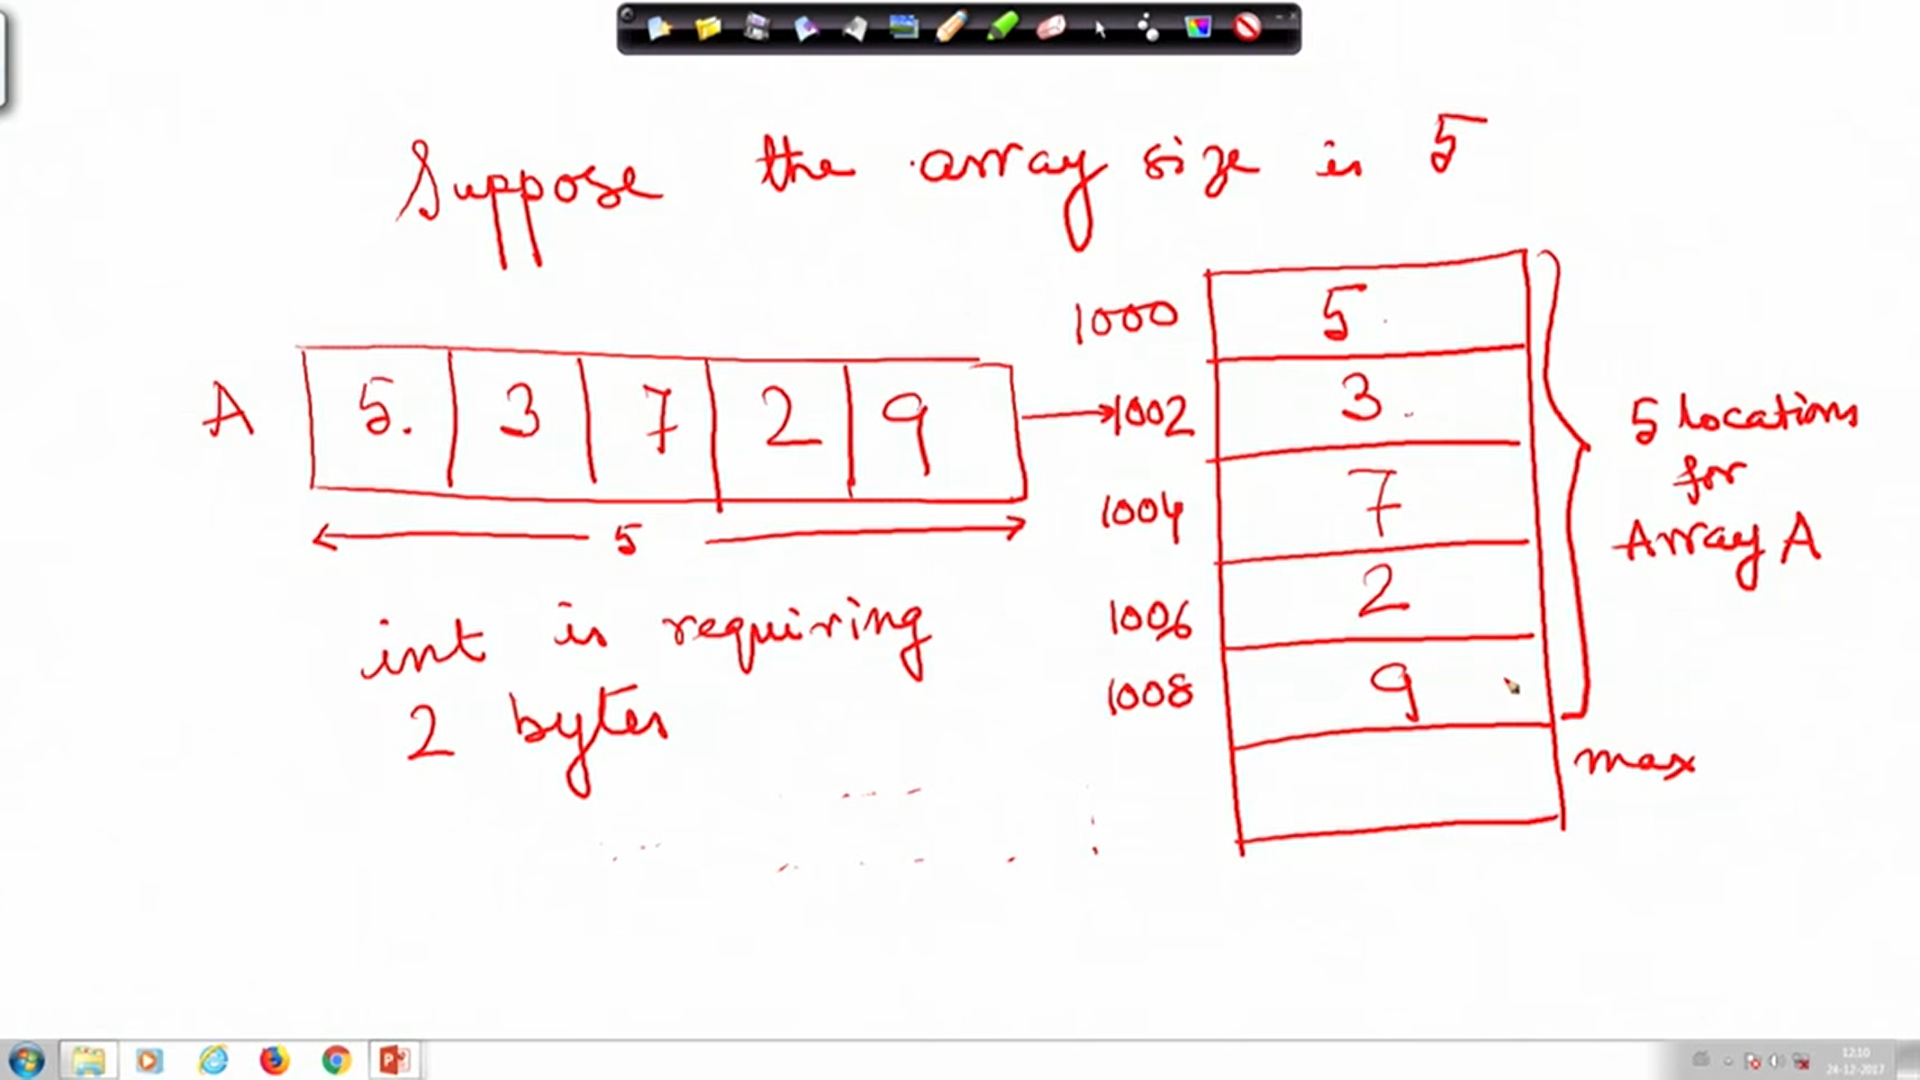 Suppose the array size is 5
A 5. 3 7 2 9
5
int is requiring
2 bytes
1000 5
1002 3
1004 7
1006 2
1008 9
max
5 locations
for
Array A
12:10
24-12-2017